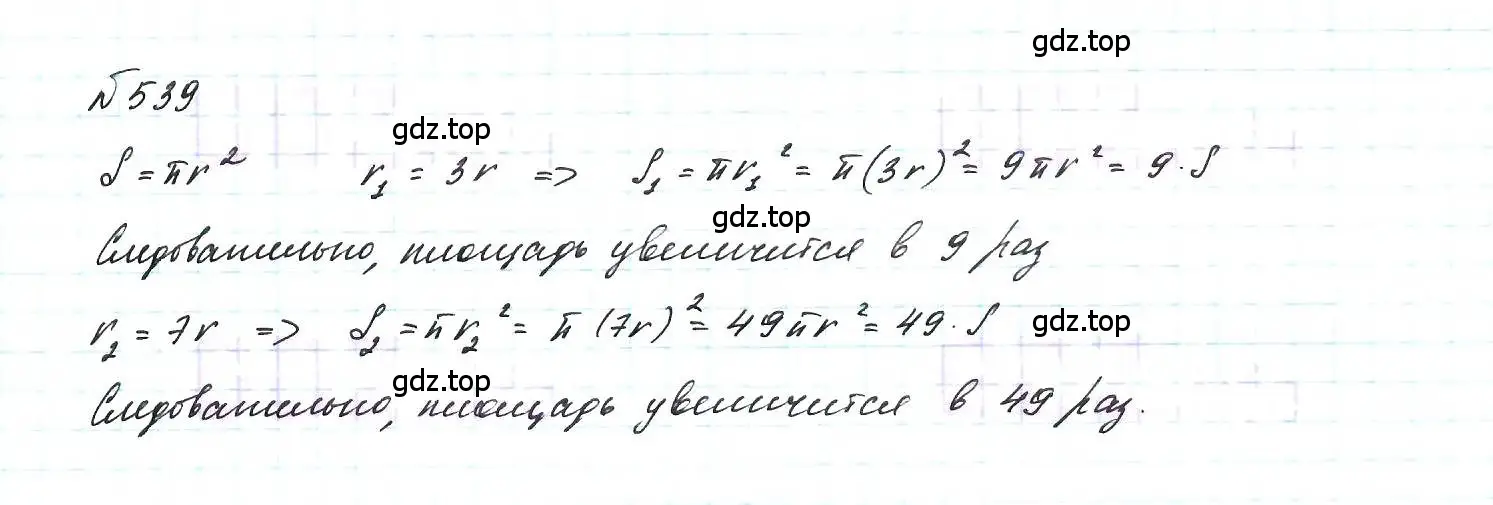 gdz.top
№ 539
gdz.top
S = πr² r₁ = 3r => S₁ = πr₁² = π(3r)² = 9πr² = 9·S
gdz.top
Следовательно, площадь увеличится в 9 раз
r₂ = 7r => S₂ = πr₂² = π(7r)² = 49πr² = 49·S gdz.top
gdz.top
Следовательно, площадь увеличится в 49 раз.